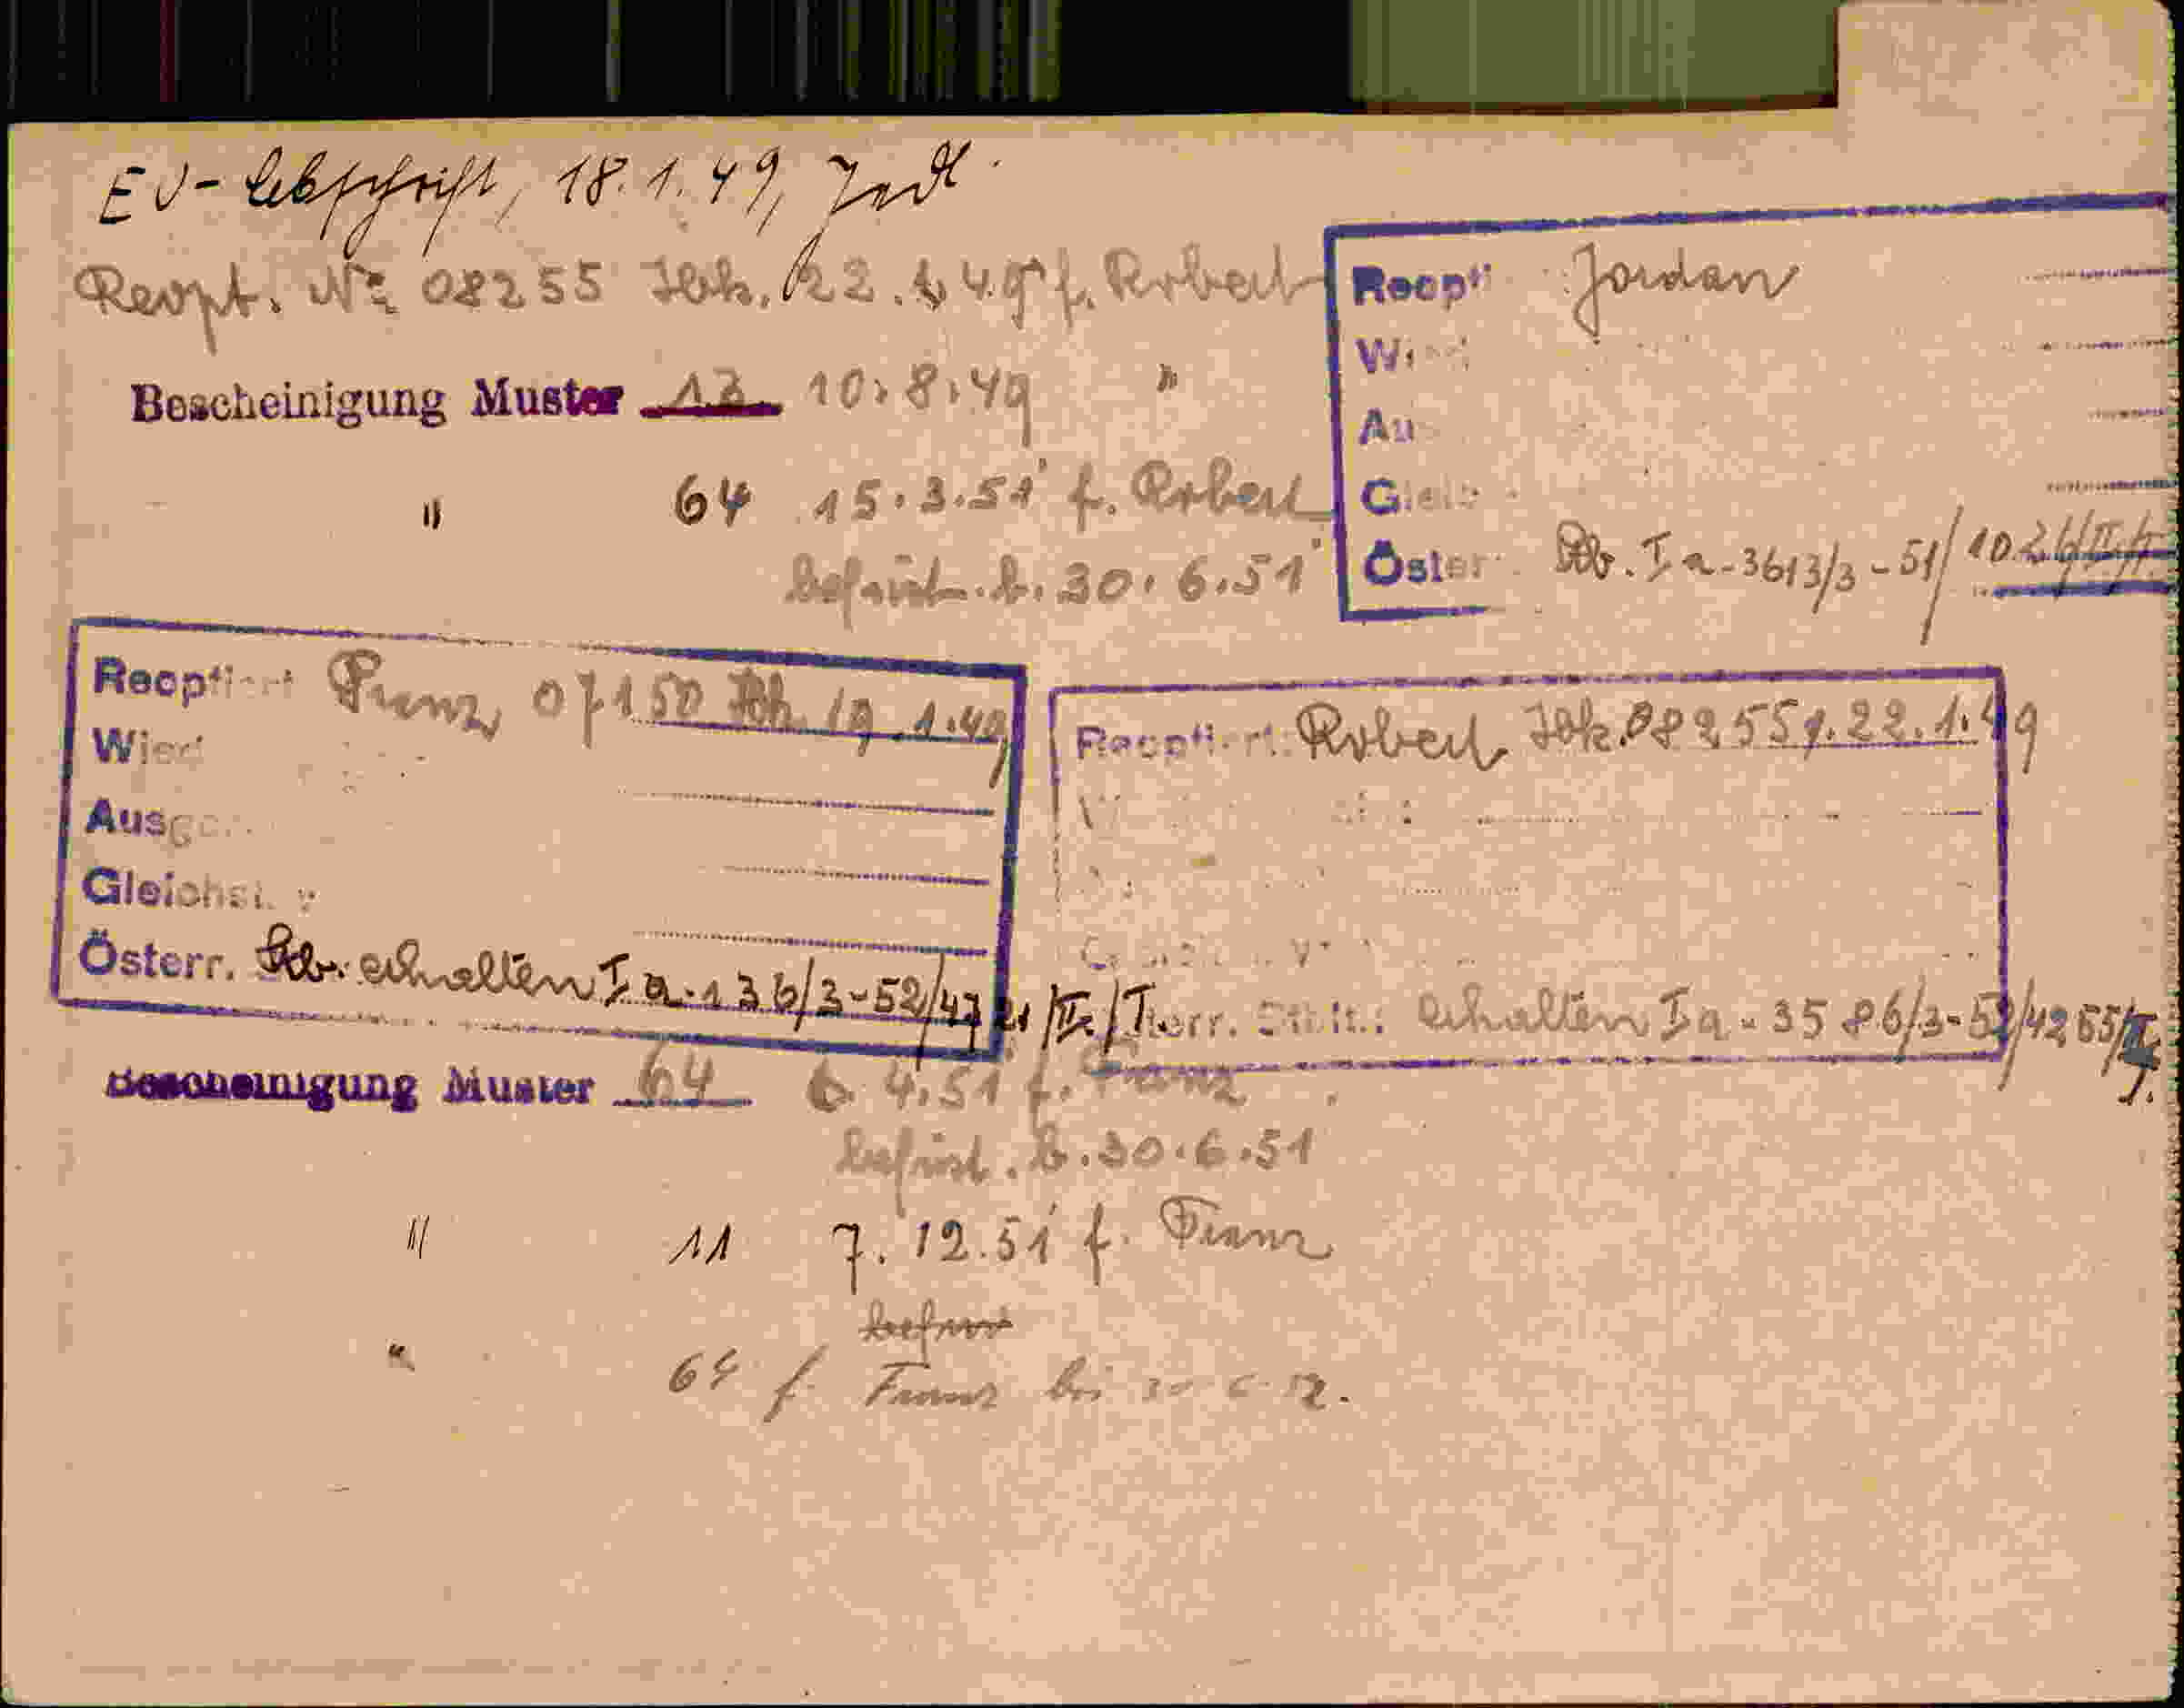 EU-Abschrift, 18.1.49,
Reopt. № 08255 Ibk. 22.1.49 f. Robert
Bescheinigung Muster 13 10.8.49 "
" 64 15.3.51 f. Robert
befrist. b. 30.6.51
Reopti Jordan
Wi
Au
Gleic
Öster Stb. I a-3613/3-51/
Reoptiert Franz 07150 Ibk. 19.1.49
Wied
Ausge
Gleichst. v
Österr. Stb. erhalten I a-136/3-52/4321/II./I.
Reoptiert: Robert Ibk. 08255 v. 22.1.49
Österr. Stb.: erhalten I a-3586/3-52/4255/II. I.
Bescheinigung Muster 64 6.4.51 f. Franz
befrist. b. 30.6.51
" 11 7.12.51 f. Franz
befrist
" 64 f. Franz bis 30.6.52.